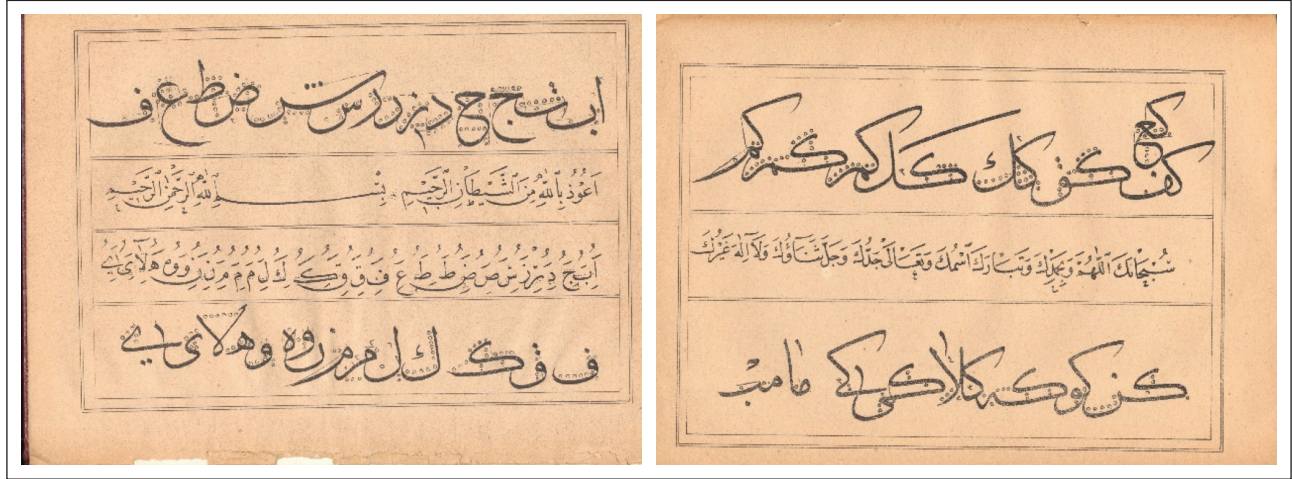 ا ب ت ج ح د ز ر س ش ض ظ ع ف
اَعُوذُ بِاللّٰهِ مِنَ الشَّيْطَانِ الرَّجِيمِ بِسْمِ اللّٰهِ الرَّحْمٰنِ الرَّحِيمِ
ف ق ك ك ل م م ن و ه و ه لا ى ے
كع كف كق كك كل كم كم كم
سُبْحَانَكَ اللّٰهُمَّ وَبِحَمْدِكَ وَتَبَارَكَ اسْمُكَ وَتَعَالٰى جَدُّكَ وَجَلَّ ثَنَاؤُكَ وَلَا اِلٰهَ غَيْرُكَ
كن كو كه كلا كى كے ما مب